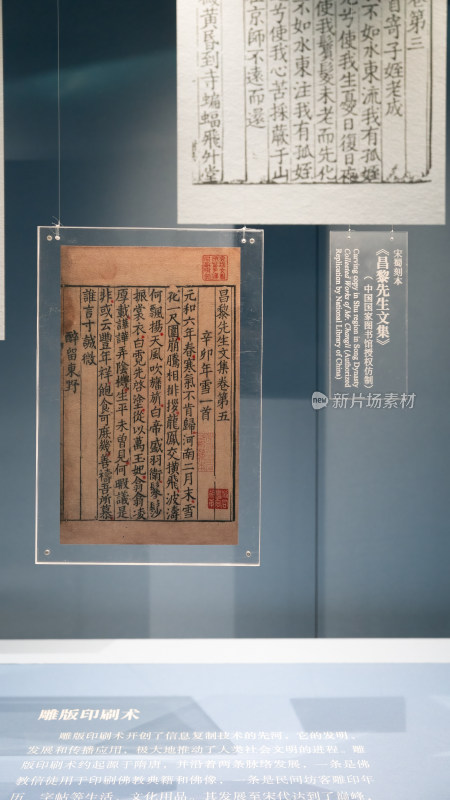 卷第三
首寄子姪老成
不如水東流我有孤姪
兮使我生憂日復日夜
使我鬢髮未老而先化
不如水東注我有孤姪
兮使我心苦採蕨于山
京師不遠而還
微黃昏到寺蝙蝠飛升堂
昌黎先生文集卷第五
辛卯年雪一首
元和六年春寒氣不肯歸河南二月末雪
花一尺圍崩騰相排拶龍鳳交橫飛波濤
何飄揚天風吹幡旂白帝盛羽衛鬖髿
振裳衣白霓先啓塗從以萬玉妃翕翕陵
厚載譁譁弄陰機生平未曾見何暇議是
非或云豐年祥飽食可庶幾善禱吾所慕
誰言寸誠微
醉留東野
宋蜀刻本
《昌黎先生文集》
（中国国家图书馆授权仿制）
Carving copy in Shu region in Song Dynasty
Collected Works of Mr. Changli (Authorized
Replication by National Library of China)
new 新片场素材
雕版印刷术
雕版印刷术开创了信息复制技术的先河，它的发明、
发展和传播应用，极大地推动了人类社会文明的进程。雕
版印刷术约起源于隋唐，并沿着两条脉络发展，一条是佛
教信徒用于印刷佛教典籍和佛像，一条是民间坊客雕印年
历、字帖等生活、文化用品。其发展至宋代达到了巅峰，